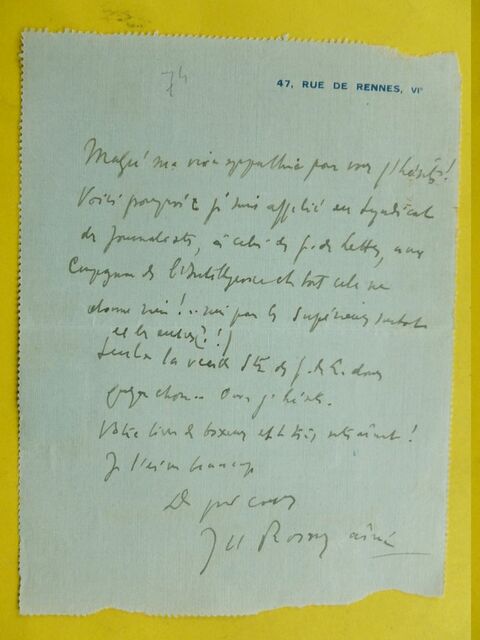 74
47, RUE DE RENNES, VIe
Malgré ma vive sympathie pour vous j'hésite!
Voici pourquoi: je suis affilié au Syndicat
de Journalistes, à celui des g. de lettres, aux
Compagnons de l'Intelligence et tout cela ne
donne rien!.. ni par les Supérieurs surtout
et les autres?!)
Seule la vieille Sté des g. de L. donne
quelque chose... Donc j'hésite.
Votre livre de boxeurs est très intéressant!
Je l'aime beaucoup
De tout cœur
J H Rosny aîné